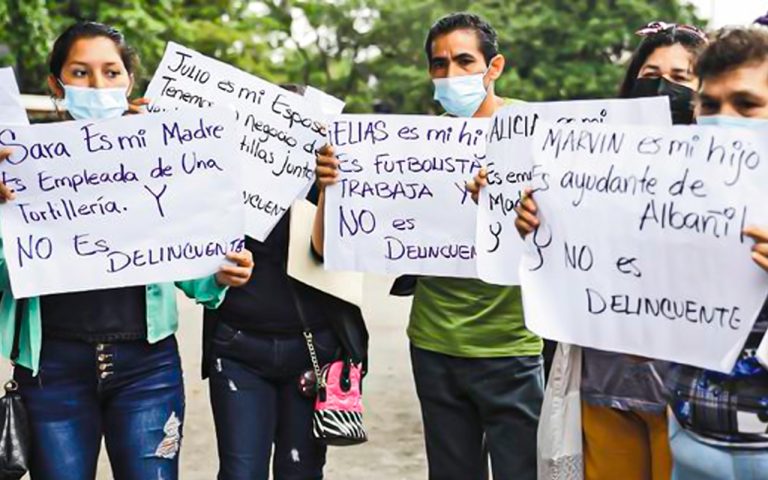 Sara Es mi Madre
Es Empleada de Una
Tortillería. Y
NO Es
DELINCUENTE
JULIO es mi Esposo
Tenemos
negocio de
tillas juntos
NO
CUENTE
ELIAS es mi hi
ES FUTBOLISTA
TRABAJA Y
NO es
DELINCUEN
ALICIA es mi
Es em
Mad
y
MARVIN es mi hijo
Es ayudante de
Albañil
y NO es
DELINCUENTE